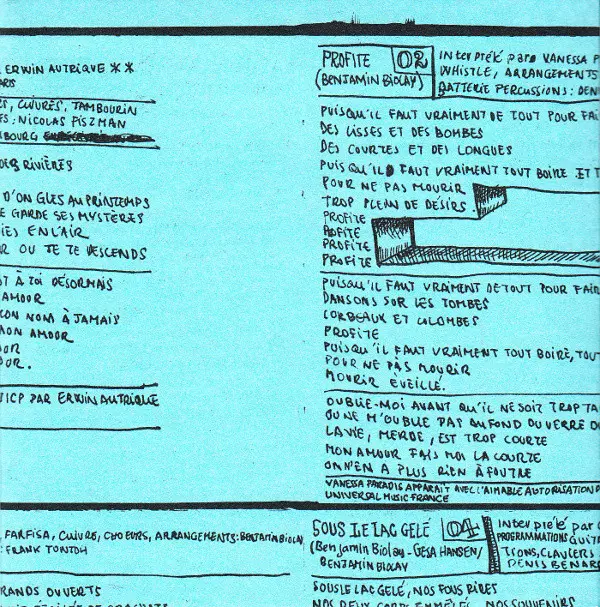 ERWIN AUTRIQUE **
ARIS
S, CUIVRES, TAMBOURIN
ES: NICOLAS FISZMAN
BOURG
DES RIVIÈRES
D'ONGLES AU PRINTEMPS
E GARDE SES MYSTÈRES
IES EN L'AIR
R OU TE TE DESCENDS
T À TOI DÉSORMAIS
AMOUR
TON NOM À JAMAIS
MON AMOUR
OUR
OUR.
ICP PAR ERWIN AUTRIQUE
PROFITE 02
(BENJAMIN BIOLAY)
Interprété par VANESSA P
WHISTLE, ARRANGEMENTS
BATTERIE PERCUSSIONS: DEN
PUISQU'IL FAUT VRAIMENT DE TOUT POUR FAI
DES LISSES ET DES BOMBES
DES COURTES ET DES LONGUES
PUISQU'IL FAUT VRAIMENT TOUT BOIRE ET T
POUR NE PAS MOURIR
TROP PLEIN DE DÉSIRS.
PROFITE
PROFITE
PROFITE
PROFITE
PUISQU'IL FAUT VRAIMENT DE TOUT POUR FAIR
DANSONS SUR LES TOMBES
CORBEAUX ET COLOMBES
PROFITE
PUISQU'IL FAUT VRAIMENT TOUT BOIRE, TOUT
POUR NE PAS MOURIR
MOURIR ÉVEILLÉ.
OUBLIE-MOI AVANT QU'IL NE SOIT TROP TA
OU NE M'OUBLIE PAS AU FOND DU VERRE O
LA VIE, MERDE, EST TROP COURTE
MON AMOUR FAIS MOI LA COURTE
ON N'EN A PLUS RIEN À FOUTRE
VANESSA PARADIS APPARAIT AVEC L'AIMABLE AUTORISATION D
UNIVERSAL MUSIC FRANCE
, FARFISA, CUIVRE, CHOEURS, ARRANGEMENTS: BENJAMIN BIOLAY
: FRANK TONTOH
RANDS OUVERTS
SOUS LE LAC GELÉ 04
(Benjamin Biolay - GESA HANSEN/
BENJAMIN BIOLAY
Interprété par
PROGRAMMATIONS GUITA
TIONS, CLAVIERS
DENIS BENAR
SOUS LE LAC GELÉ, NOS FOUS RIRES
NOS DEUX CORPS EMMÊLÉS, NOS SOUVENIRS